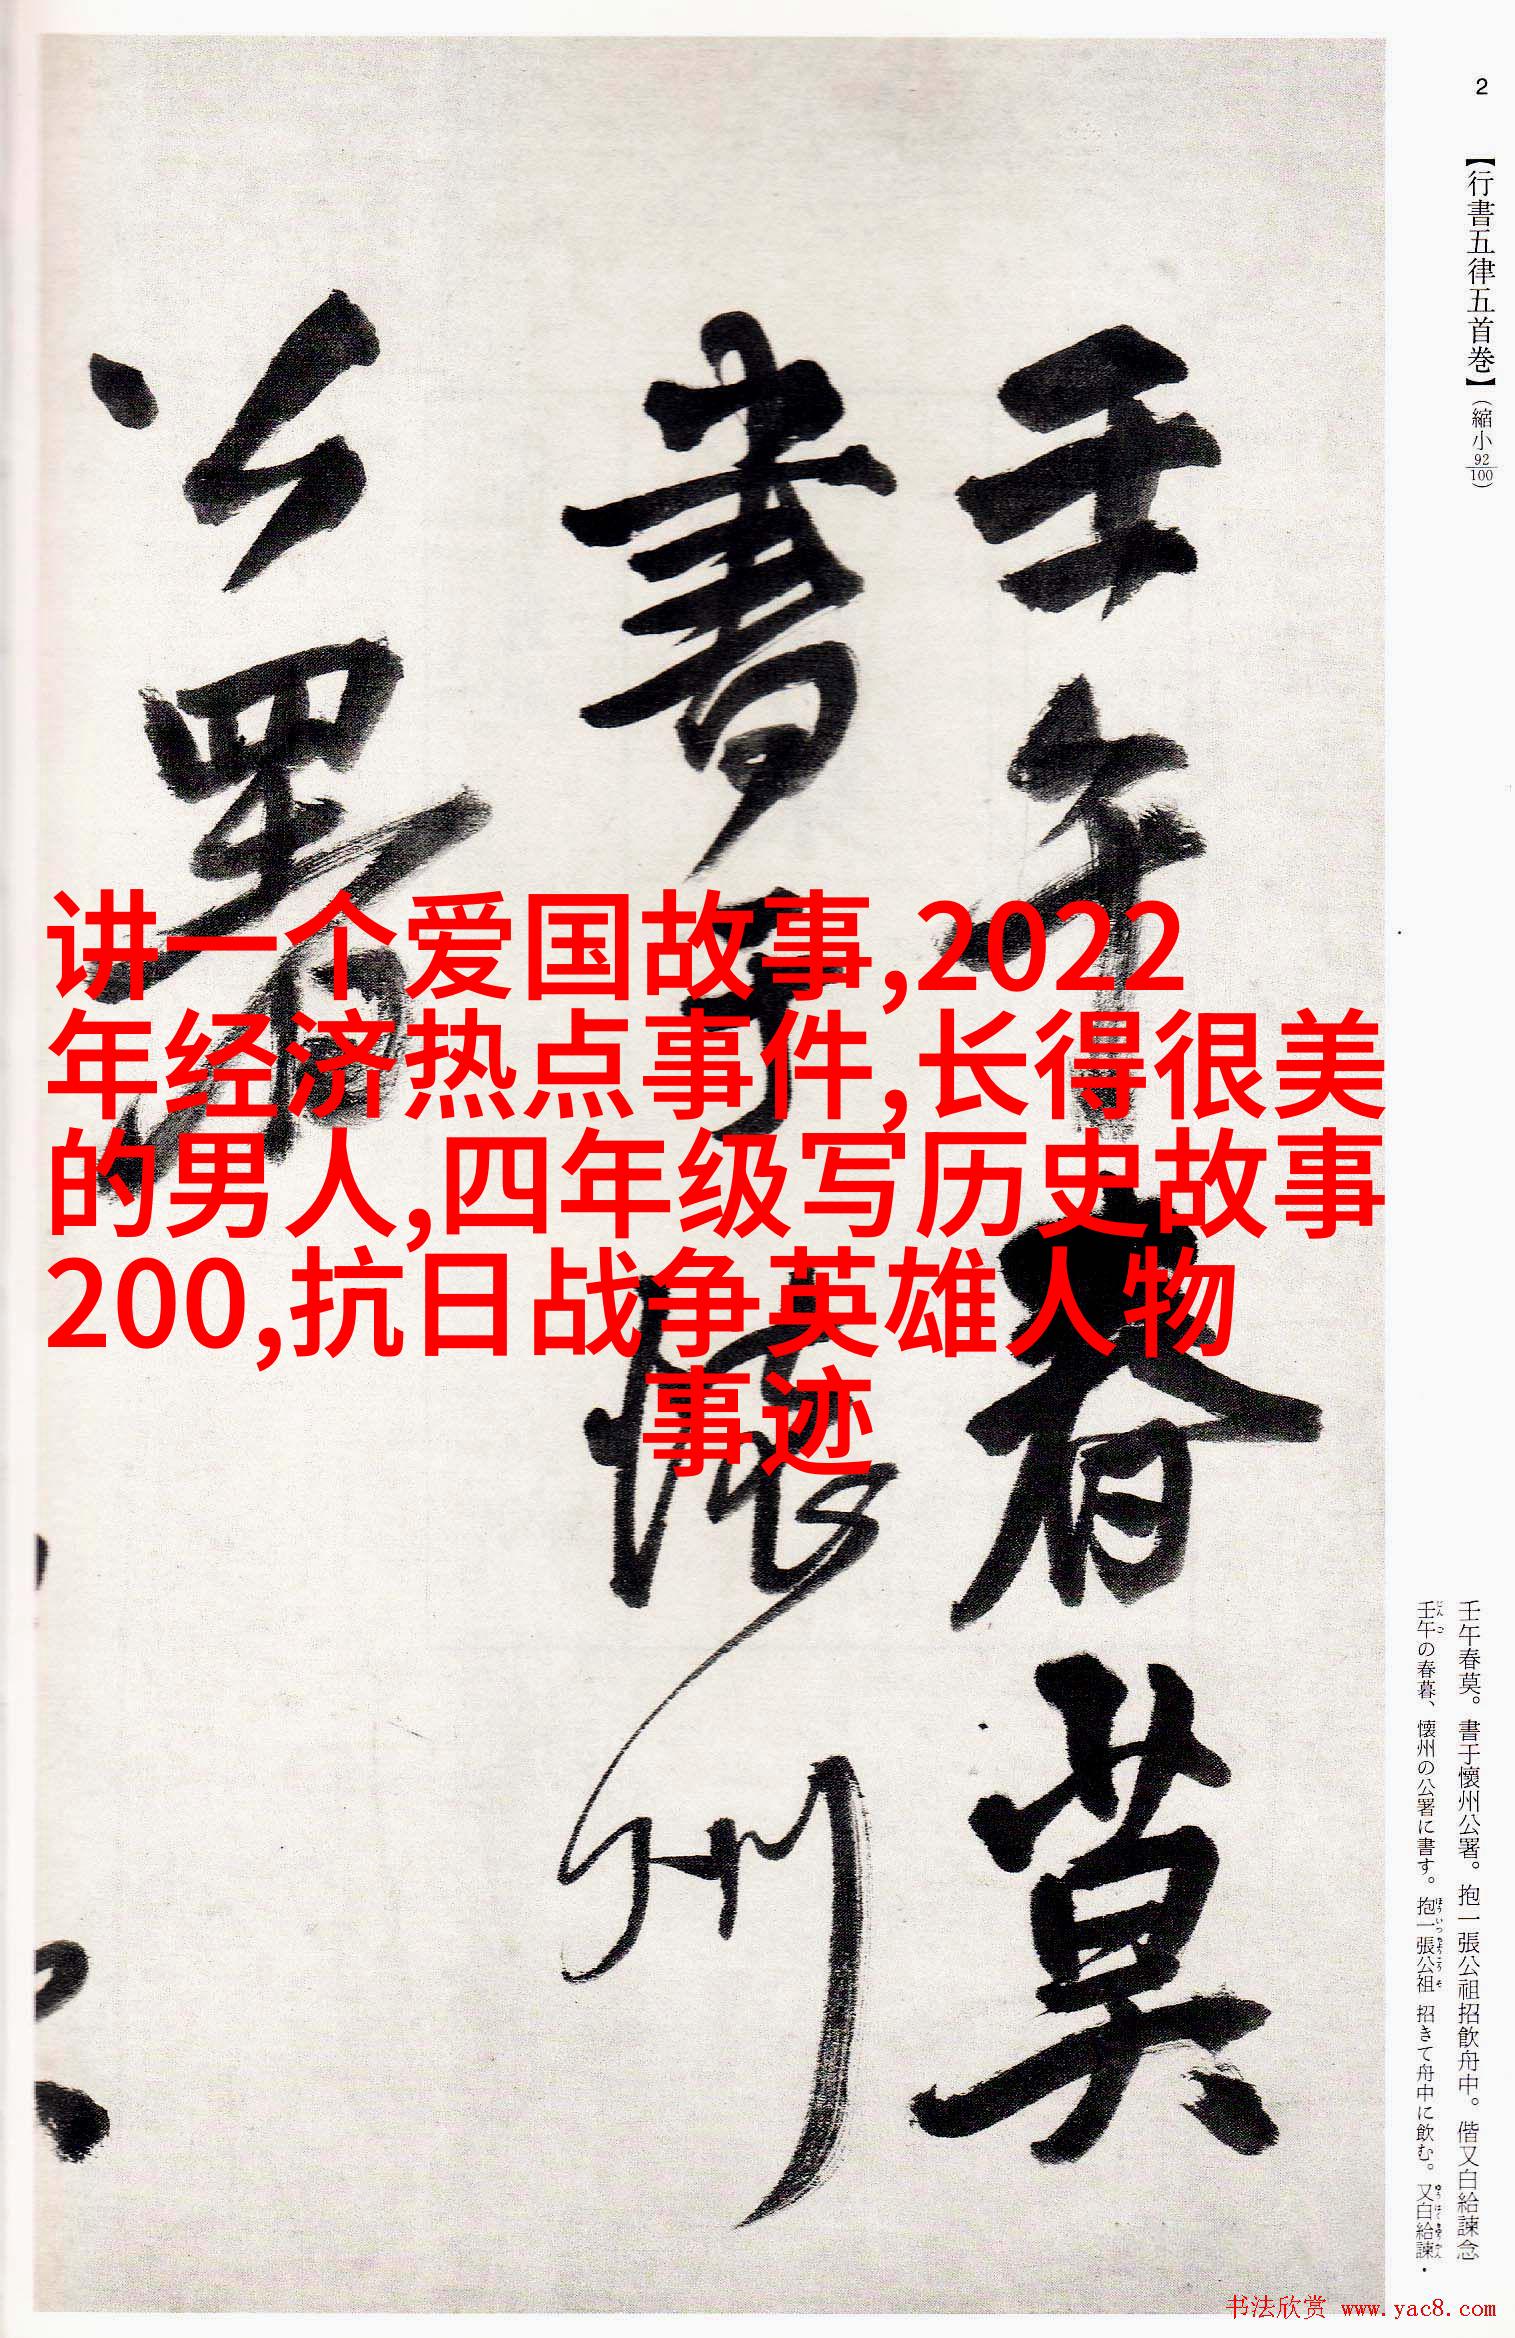 2
【行書五律五首巻】(縮小92/100)
壬午春莫
書于懷州
公署
讲一个爱国故事,2022
年经济热点事件,长得很美
的男人,四年级写历史故事
200,抗日战争英雄人物
事迹
壬午春莫。書于懷州公署。抱一張公祖招飲舟中。偕又白給諫念
壬午の春暮、懷州の公署に書す。抱一張公祖 招きて舟中に飲む。又白給諫・
书法欣赏 www.yac8.com